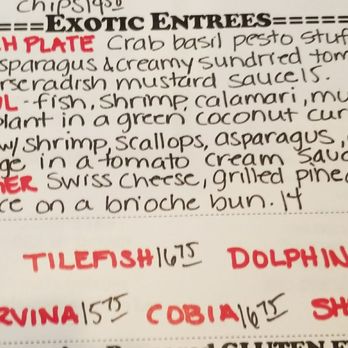 chips 14.50
===EXOTIC ENTREES=====
H PLATE Crab basil pesto stuf
sparagus & creamy sundried tom
rseradish mustard sauce 15.
L - fish, shrimp, calamari, mu
plant in a green coconut cur
w/ shrimp, scallops, asparagus,
ge in a tomato cream sauc
ER Swiss cheese, grilled pine
ce on a brioche bun. 14
TILEFISH 16.75 DOLPHIN
RVINA 15.75 COBIA 16.75 SH
GLUTEN F